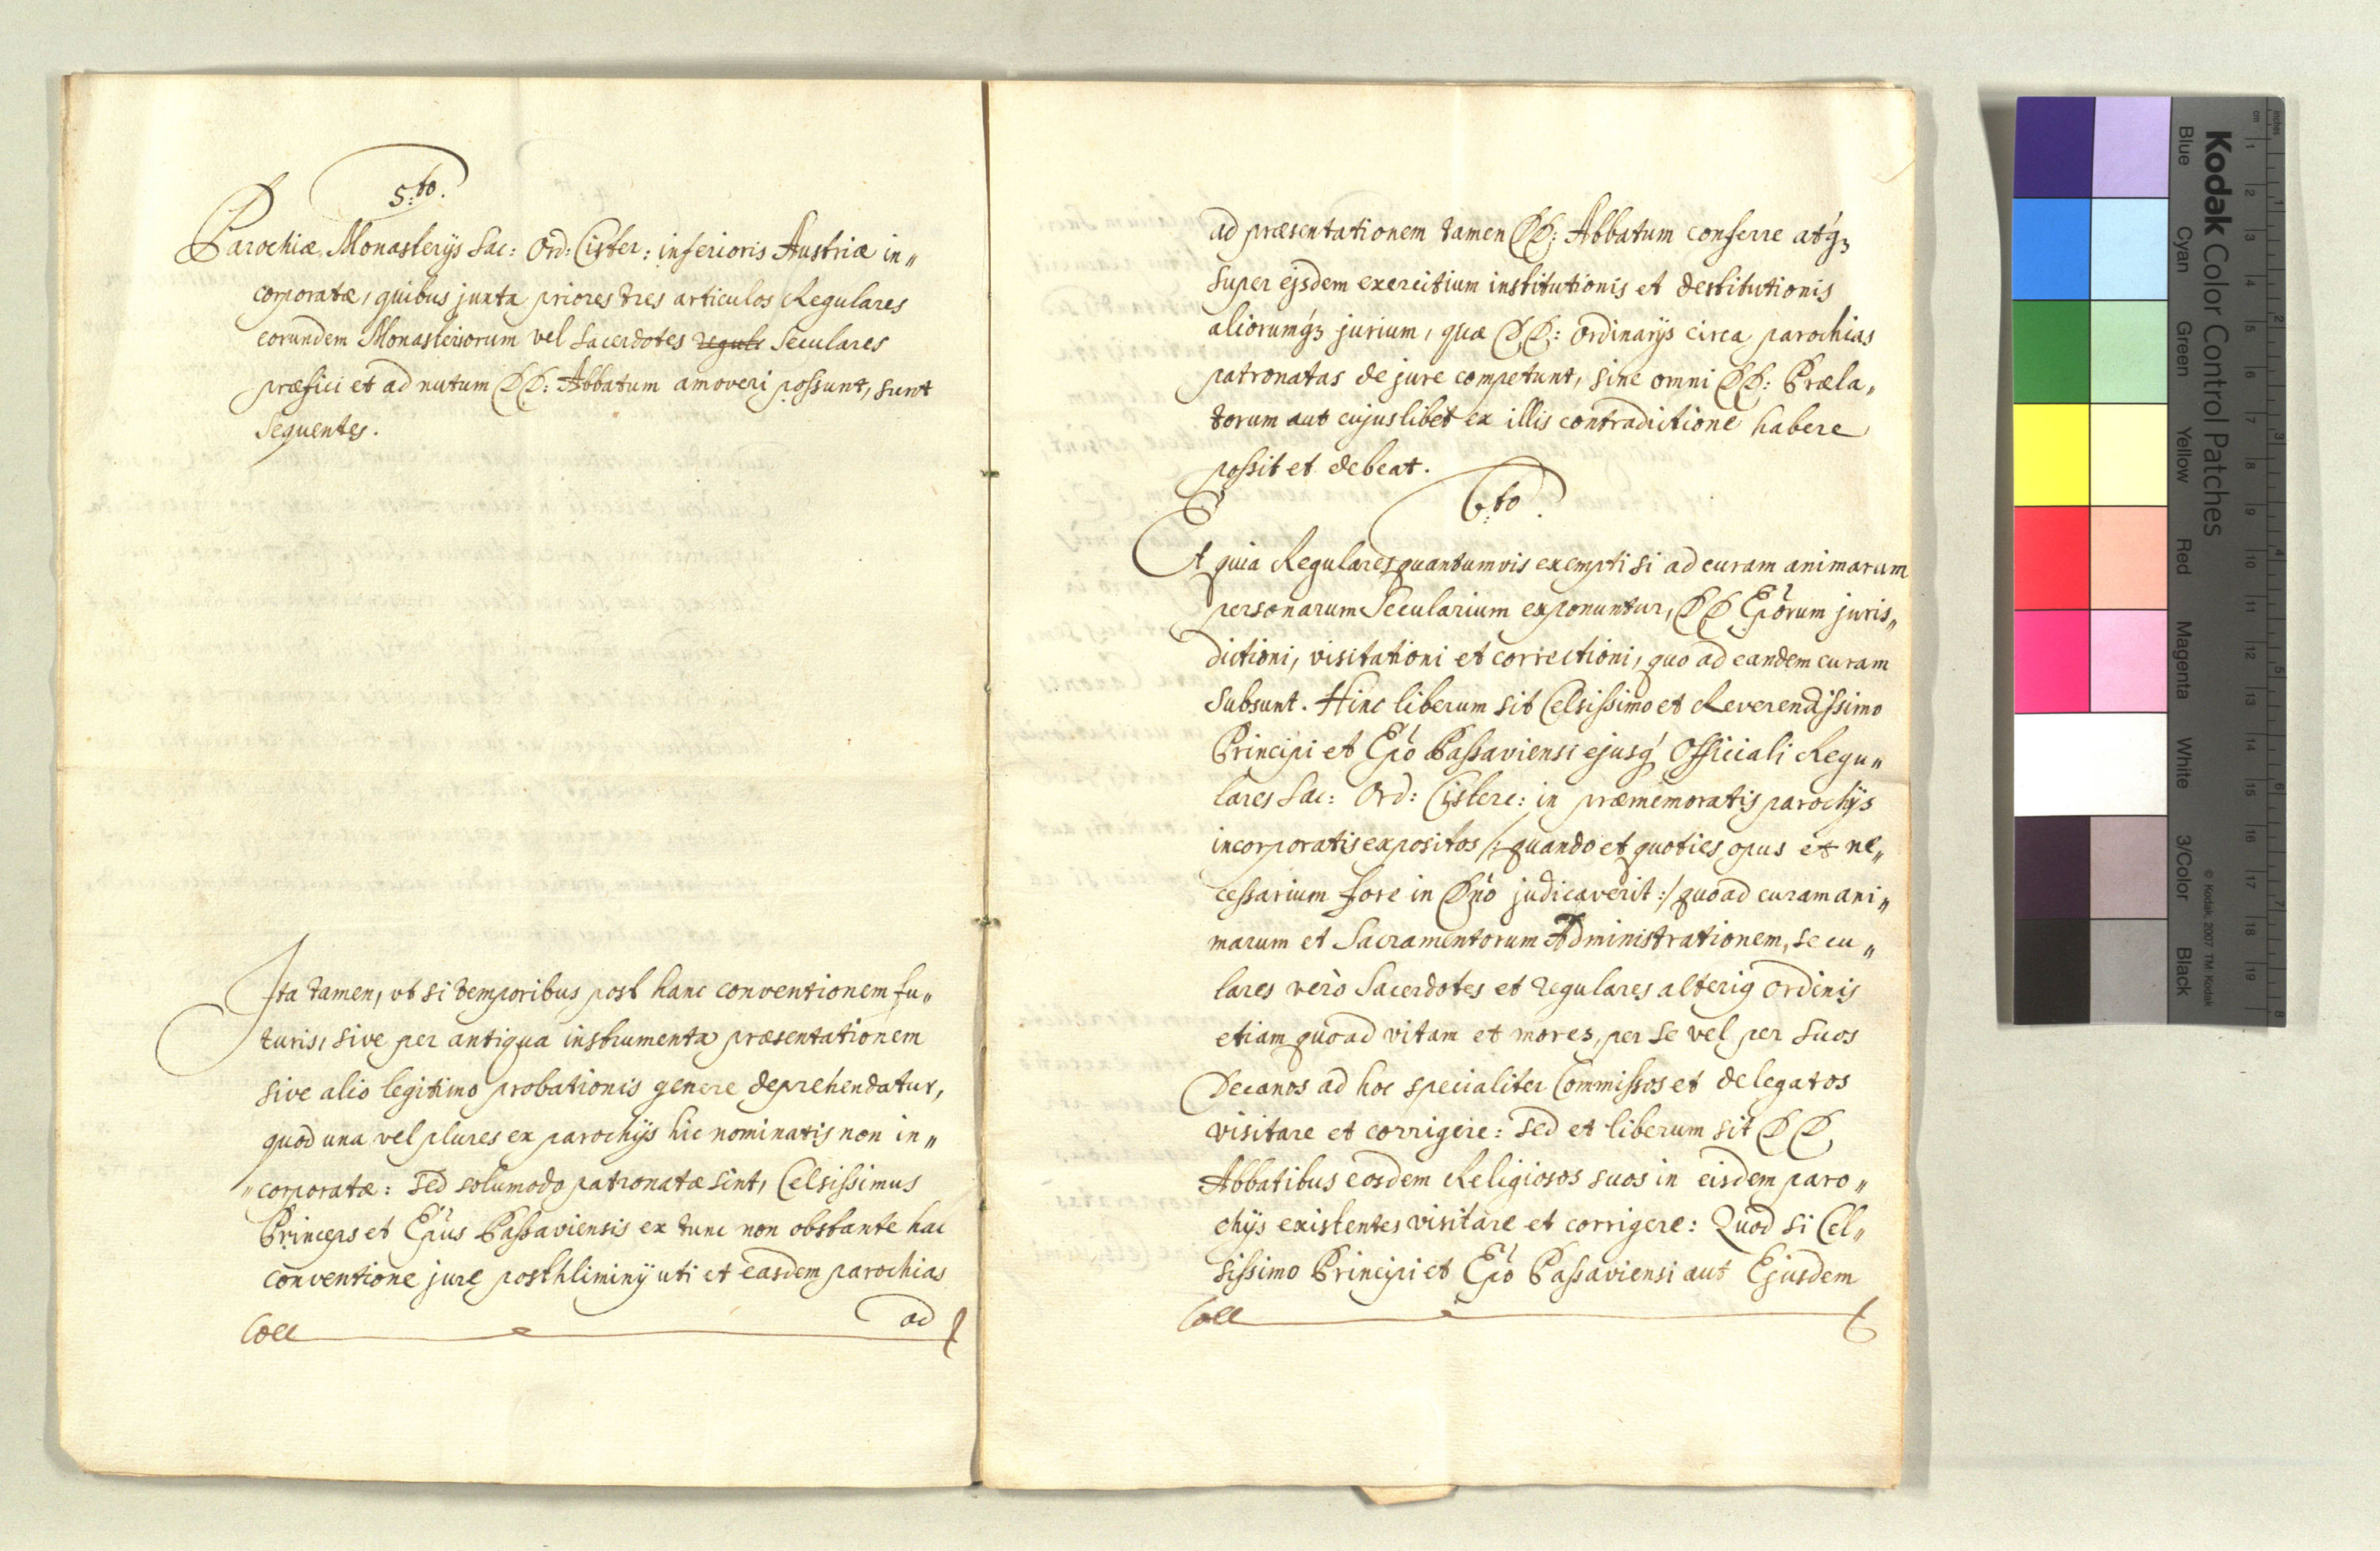 5.to.
Parochiæ Monasterijs Sac: Ord: Cister: inferioris Austriæ in„
corporatæ, quibus juxta priores tres articulos Regulares
eorundem Monasteriorum vel Sacerdotes regula Seculares
præfici et ad nutum DD: Abbatum amoveri possunt, sunt
Sequentes.
Ita tamen, vt si temporibus post hanc conventionem fu„
turis, sive per antiqua instrumenta præsentationem
sive alio legitimo probationis genere deprehendatur,
quod una vel plures ex parochijs hic nominatis non in„
„corporatæ: sed solumodo patronatæ sint, Celsissimus
Princeps et Epus Passaviensis ex tunc non obstante hac
conventione jure posthliminij uti et easdem parochias
ad
Coll
ad præsentationem tamen DD: Abbatum conferre atq3
super ejsdem exercitium institutionis et destitutionis
aliorumq3 jurium, quæ DD: Ordinarijs circa parochias
patronatas de jure competunt, sine omni DD: Præla„
torum aut cujuslibet ex illis contradictione habere
possit et debeat.
6.to.
Et quia Regulares quantumvis exempti si ad curam animarum
personarum Secularium exponuntur, DD Eporum juris„
dictioni, visitationi et correctioni, quo ad eandem curam
subsunt. Hinc liberum sit Celsissimo et Reverendissimo
Principi et Epo Passaviensi ejusq Officiali Regu„
lares Sac: Ord: Cisterc: in præmemoratis parochijs
incorporatis expositos /: quando et quoties opus et ne„
cessarium fore in Dno judicaverit :/ quoad curam ani„
marum et Sacramentorum Administrationem, secu„
lares verò Sacerdotes et regulares alterig ordinis
etiam quoad vitam et mores, per se vel per suos
Decanos ad hoc specialiter Commissos et delegatos
visitare et corrigere: sed et liberum sit DD
Abbatibus eosdem Religiosos suos in eisdem paro„
chijs existentes visitare et corrigere: Quod si Cel„
sissimo Principi et Epo Passaviensi aut Ejusdem
Coll
Kodak Color Control Patches
Blue Cyan Green Yellow Red Magenta White 3/Color Black
© Kodak, 2007 TM Kodak
cm 1 2 3 4 5 6 7 8 9 10 11 12 13 14 15 16 17 18 19
inches 1 2 3 4 5 6 7 8